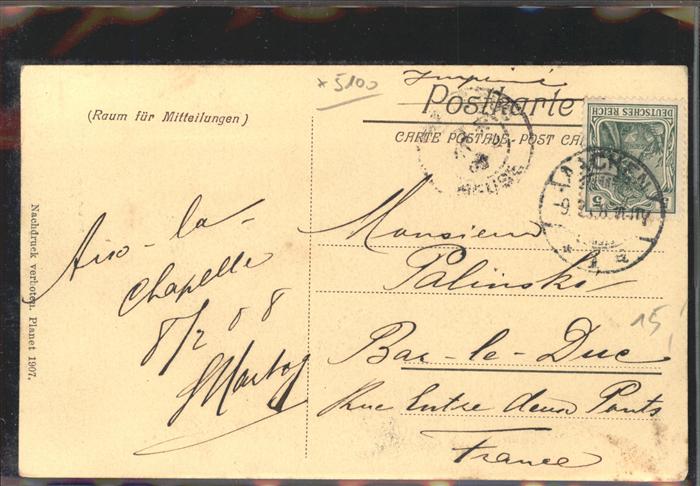 x 5100
Imprimé
Postkarte
CARTE POSTALE - POST CA
(Raum für Mitteilungen)
DEUTSCHES REICH
5 5
AACHEN
1 a
MEUSE
Aix-la-
Chapelle
8/2 08
Monsieur
Palinski
Bar-le-Duc
Rue Entre deux Ponts
France
15
Nachdruck verboten. Planet 1907.